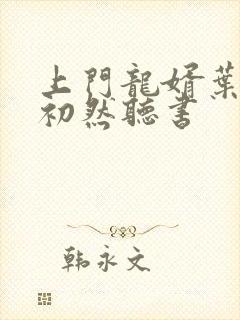 上門龍婿葉
初然聽書
韩永文